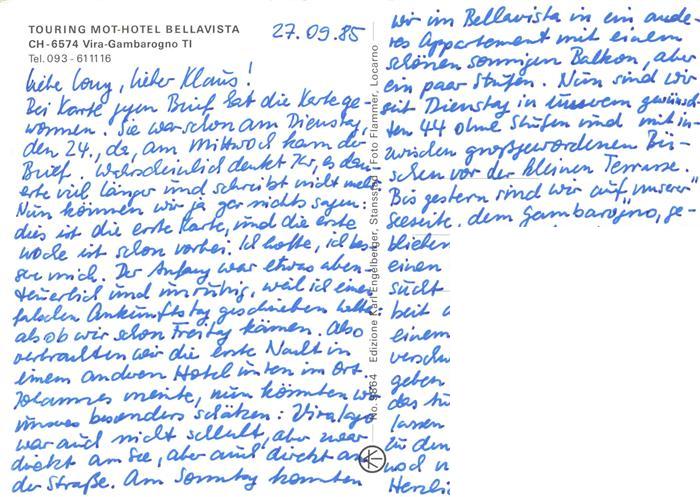 TOURING MOT-HOTEL BELLAVISTA
CH-6574 Vira-Gambarogno TI
Tel. 093-611116
27.09.85
Liebe Lony, lieber Klaus!
Bei Karte gegen Brief hat die Karte ge-
wonnen. Sie war schon am Dienstag,
den 24., da, am Mittwoch kam der
Brief. Wahrscheinlich denkt Ihr, es dau-
erte viel länger und schreibt nicht mehr.
Nun können wir ja gar nichts sagen:
dies ist die erste Karte, und die erste
Woche ist schon vorbei. Ich hoffe, ich bes-
sere mich. Der Anfang war etwas aben-
teuerlich und unruhig, weil ich einen
falschen Ankunftstag geschrieben hatte:
als ob wir schon Freitag kämen. Also
verbrachten wir die erste Nacht in
einem anderen Hotel unten im Ort.
Johannes meinte, nun könnten wir
unseres besonders schätzen: Viralago
war auch nicht schlecht, aber zwar
direkt am See, aber auch direkt an
der Straße. Am Sonntag konnten
No. 9864 Edizione Karl Engelberger, Stansstad / Foto Flammer, Locarno
wir im Bellavista in ein ande-
res Appartement mit einem
schönen sonnigen Balkon, aber
ein paar Stufen. Nun sind wir
seit Dienstag in unserem gewünsch-
ten 44 ohne Stufen und mit in-
zwischen großgewordenen Bü-
schen vor der kleinen Terrasse.
Bis gestern sind wir auf "unserer"
Seeseite, dem Gambarogno, ge-
blieben
einen
sucht
beit
einem
verschw
geben
das
lassen
zu den
noch
Herzli